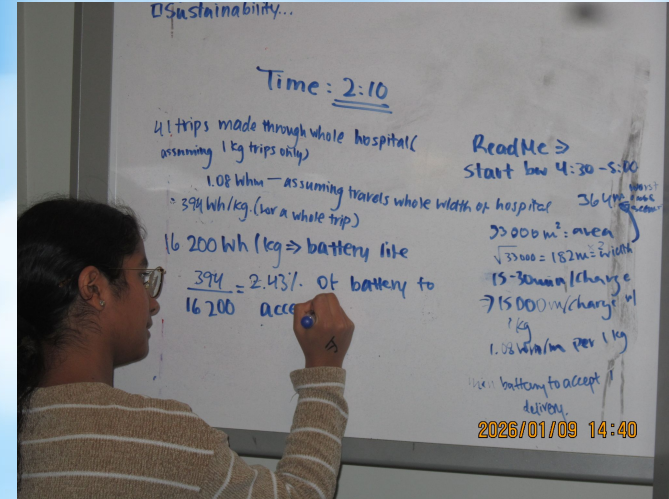 Sustainability...
Time: 2:10
41 trips made through whole hospital(
assuming 1 kg trips only)
1.08 Whm — assuming travels whole width of hospital
= 394 Wh/kg. (for a whole trip)
16 200 Wh/kg => battery life
394
16 200
= 2.43% of battery to
acce
ReadMe =>
start bw 4:30-5:00
364m worst
33000m²: area
√33000 = 182m = width
15-30min/charge
→15000m/charge w/
1kg
1.08 Whm/m per 1 kg
battery to accept 1
delivery.
2026/01/09 14:40